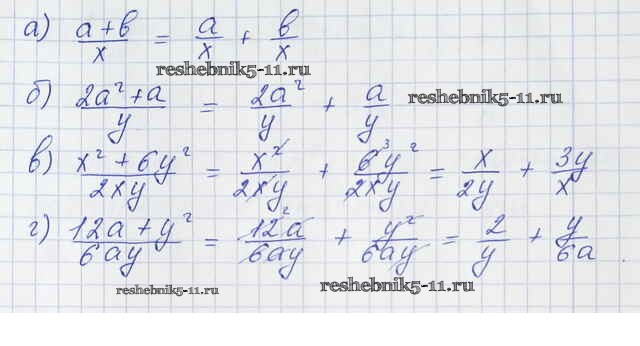 а) (a+b)/x = a/x + b/x
reshebnik5-11.ru
б) (2a²+a)/y = 2a²/y + a/y
reshebnik5-11.ru
в) (x²+6y²)/(2xy) = x²/(2xy) + 6³y²/(2xy) = x/(2y) + 3y/x
г) (12a+y²)/(6ay) = 12²a/(6ay) + y²/(6ay) = 2/y + y/(6a).
reshebnik5-11.ru
reshebnik5-11.ru